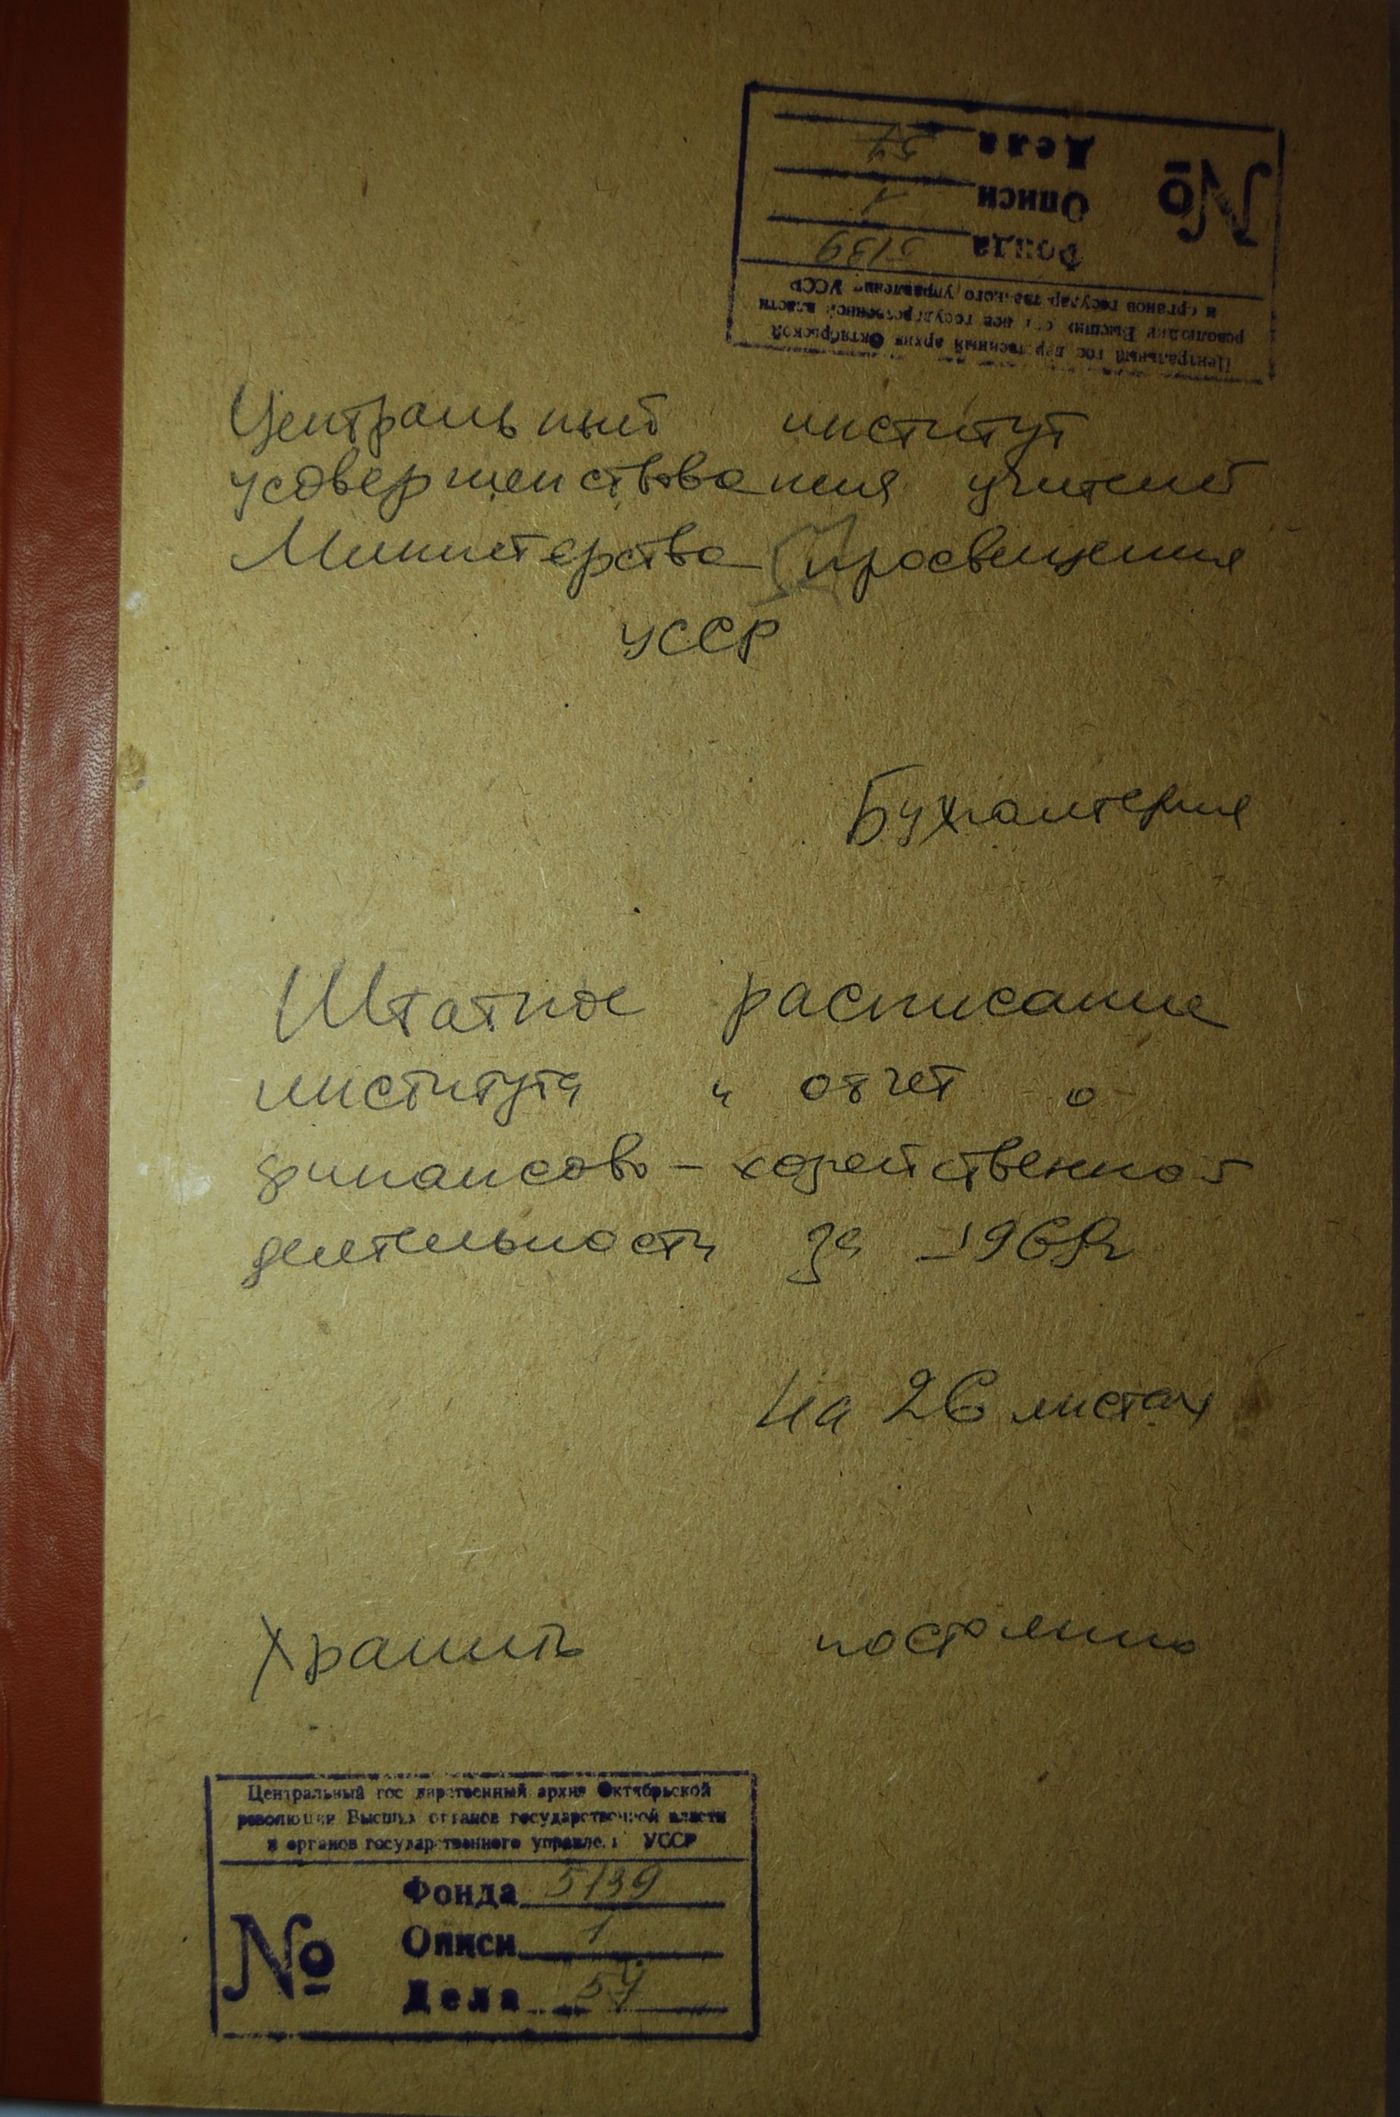 Центральный государственный архив Октябрьской
революции Высших органов государственной власти
и органов государственного управления УССР
№
Фонда 5139
Описи 1
Дела 57
Центральный институт
усовершенствования учителей
Министерства просвещения
УССР
Бухгалтерия
Штатное расписание
института и отчет о
финансово-хозяйственной
деятельности за 1968г
На 26 листах
Хранить постоянно
Центральный государственный архив Октябрьской
революции Высших органов государственной власти
и органов государственного управления УССР
№
Фонда 5139
Описи 1
Дела 57